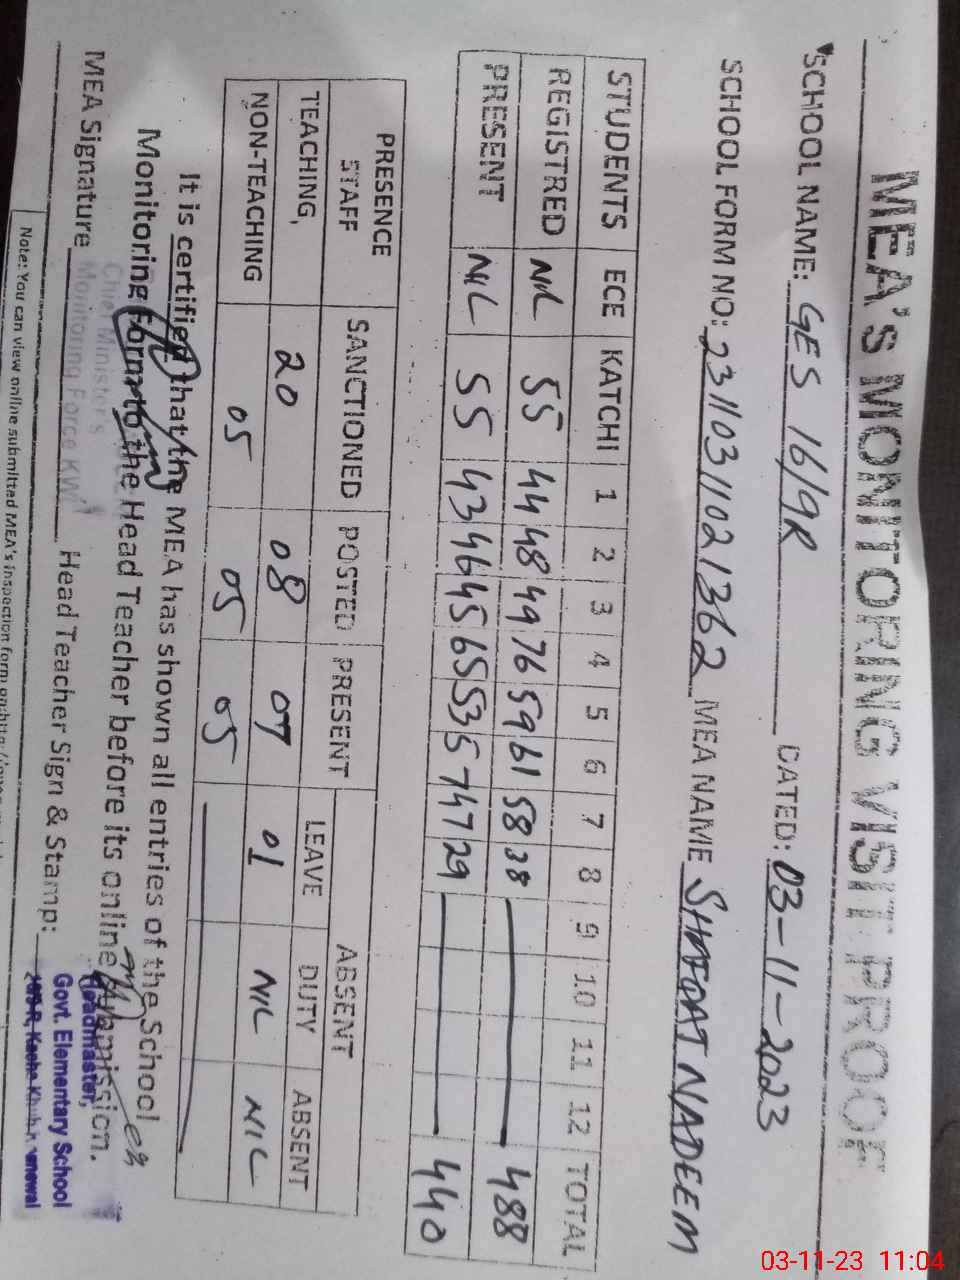 MEA'S MONITORING VISIT PROOF
SCHOOL NAME: GES 16/9R DATED: 03-11-2023
SCHOOL FORM NO: 23110311021362 MEA NAME SHAFQAT NADEEM
STUDENTS ECE KATCHI 1 2 3 4 5 6 7 8 9 10 11 12 TOTAL
REGISTRED NIL 55 44 48 49 76 59 61 58 38 488
PRESENT NIL 55 43 46 45 65 53 57 47 29 440
PRESENCE STAFF SANCTIONED POSTED PRESENT ABSENT
LEAVE DUTY ABSENT
TEACHING, 20 08 07 01 NIL NIL
NON-TEACHING 05 05 05
It is certified that the MEA has shown all entries of the School
Monitoring Form to the Head Teacher before its online submission.
Chief Minister's
Monitoring Force KWL
MEA Signature Head Teacher Sign & Stamp:
Headmaster,
Govt. Elementary School
Note: You can view online submitted MEA's inspection form on
03-11-23 11:04